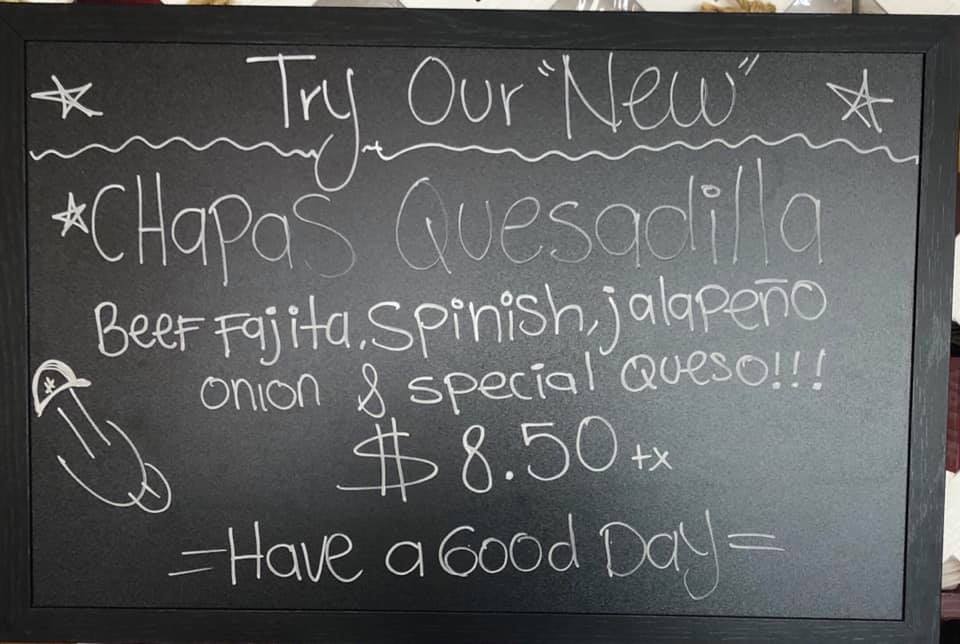 Try Our "New"
CHapaS Quesadilla
BeeF Fajita, Spinish, jalapeño
onion & special Queso!!!
$8.50 +x
=Have a Good Day=